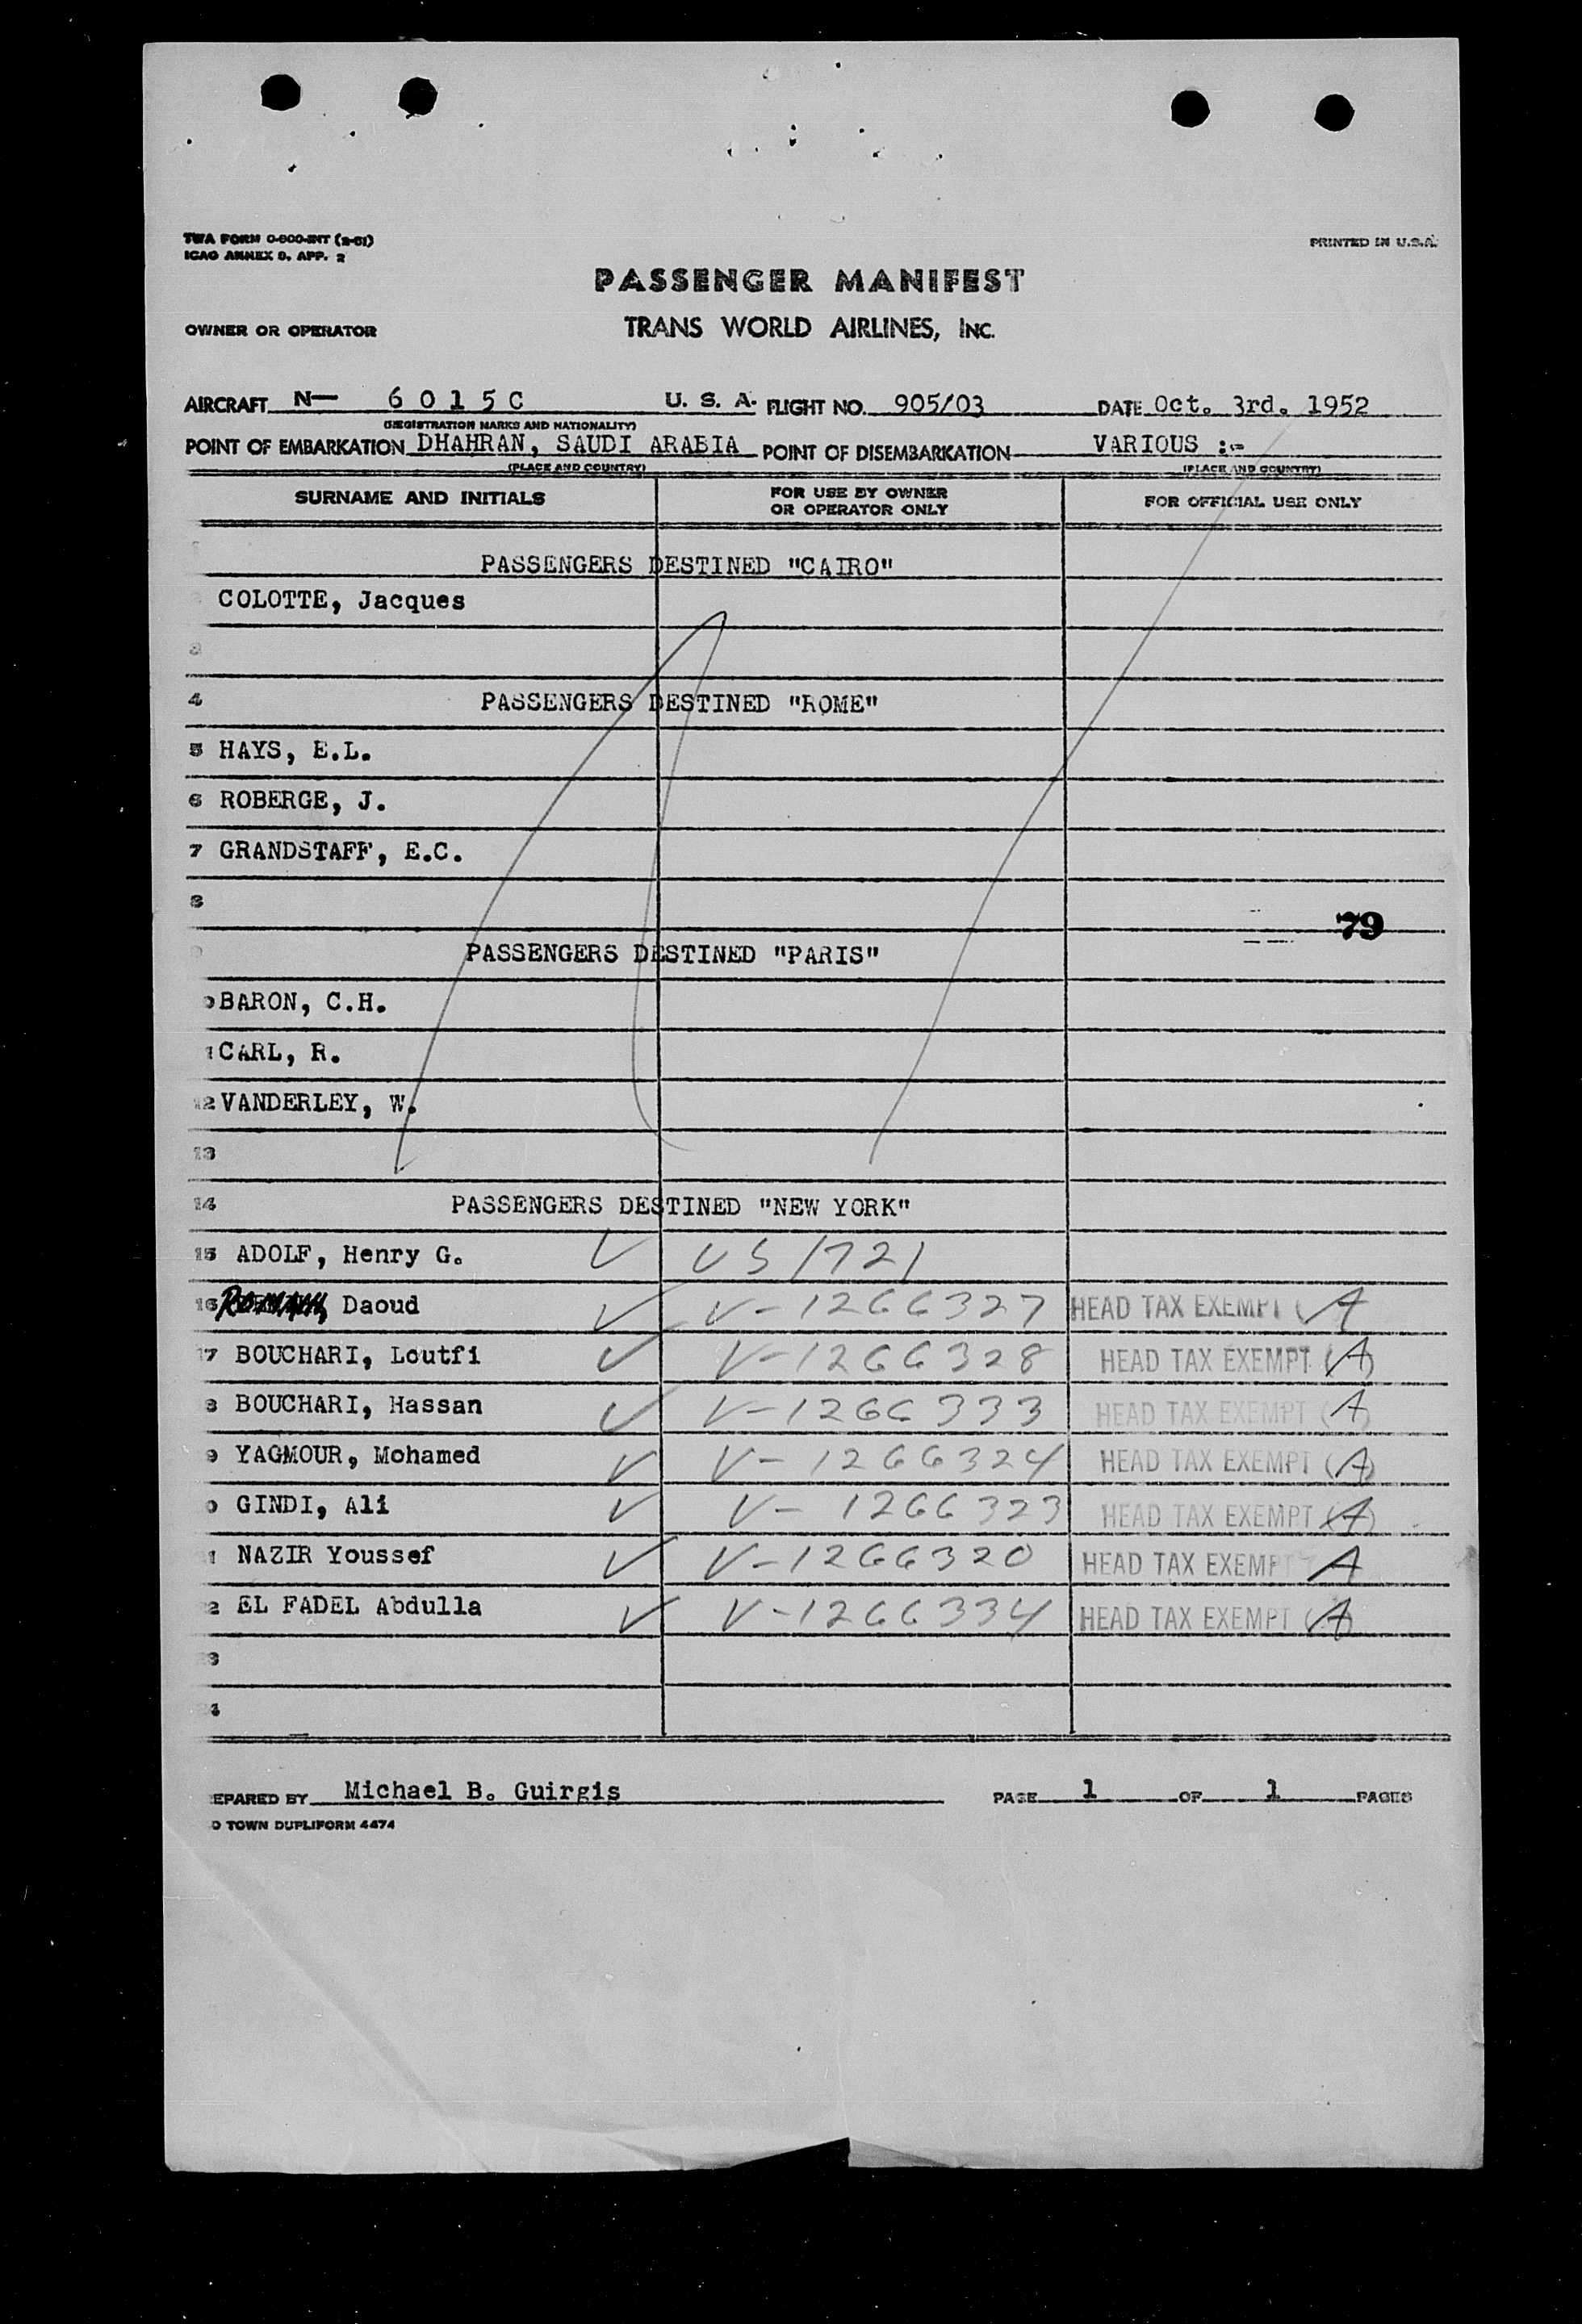 TWA FORM O-800-INT (2-51)
ICAO ANNEX 9, APP. 2
PRINTED IN U.S.A.
PASSENGER MANIFEST
OWNER OR OPERATOR TRANS WORLD AIRLINES, INC.
AIRCRAFT N— 6015C U. S. A. FLIGHT NO. 905/03 DATE Oct. 3rd. 1952
(REGISTRATION MARKS AND NATIONALITY)
POINT OF EMBARKATION DHAHRAN, SAUDI ARABIA POINT OF DISEMBARKATION VARIOUS :-
(PLACE AND COUNTRY) (PLACE AND COUNTRY)
SURNAME AND INITIALS FOR USE BY OWNER OR OPERATOR ONLY FOR OFFICIAL USE ONLY
PASSENGERS DESTINED "CAIRO"
COLOTTE, Jacques
3
4 PASSENGERS DESTINED "ROME"
5 HAYS, E.L.
6 ROBERGE, J.
7 GRANDSTAFF, E.C.
8
79
PASSENGERS DESTINED "PARIS"
BARON, C.H.
1 CARL, R.
12 VANDERLEY, W.
13
14 PASSENGERS DESTINED "NEW YORK"
15 ADOLF, Henry G. ✓ US 1721
16 Daoud ✓ V-1266327 HEAD TAX EXEMPT (A
17 BOUCHARI, Loutfi ✓ V-1266328 HEAD TAX EXEMPT (A)
8 BOUCHARI, Hassan ✓ V-1266333 HEAD TAX EXEMPT (A)
9 YAGMOUR, Mohamed ✓ V-1266324 HEAD TAX EXEMPT (A)
0 GINDI, Ali ✓ V-1266323 HEAD TAX EXEMPT (A)
1 NAZIR Youssef ✓ V-1266320 HEAD TAX EXEMPT A
2 EL FADEL Abdulla ✓ V-1266334 HEAD TAX EXEMPT (A)
3
4
EPARED BY Michael B. Guirgis PAGE 1 OF 1 PAGES
O TOWN DUPLIFORM 4474